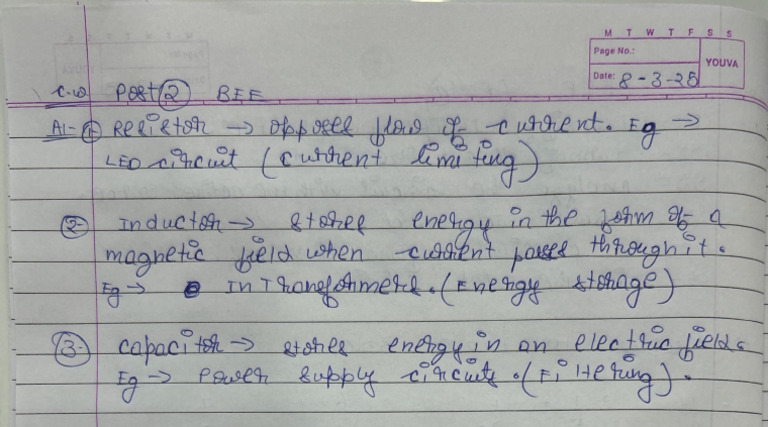 M T W T F S S
Page No.:
YOUVA
Date: 8-3-25
C.W Part ② BEE
A1- ① Resistor → opposes flow of current. Eg →
LED circuit (current limiting)
②- Inductor → stores energy in the form of a
magnetic field when current passes through it.
Eg → In Transformers. (Energy storage)
③- capacitor → stores energy in an electric field.
Eg → Power supply circuits. (Filtering).